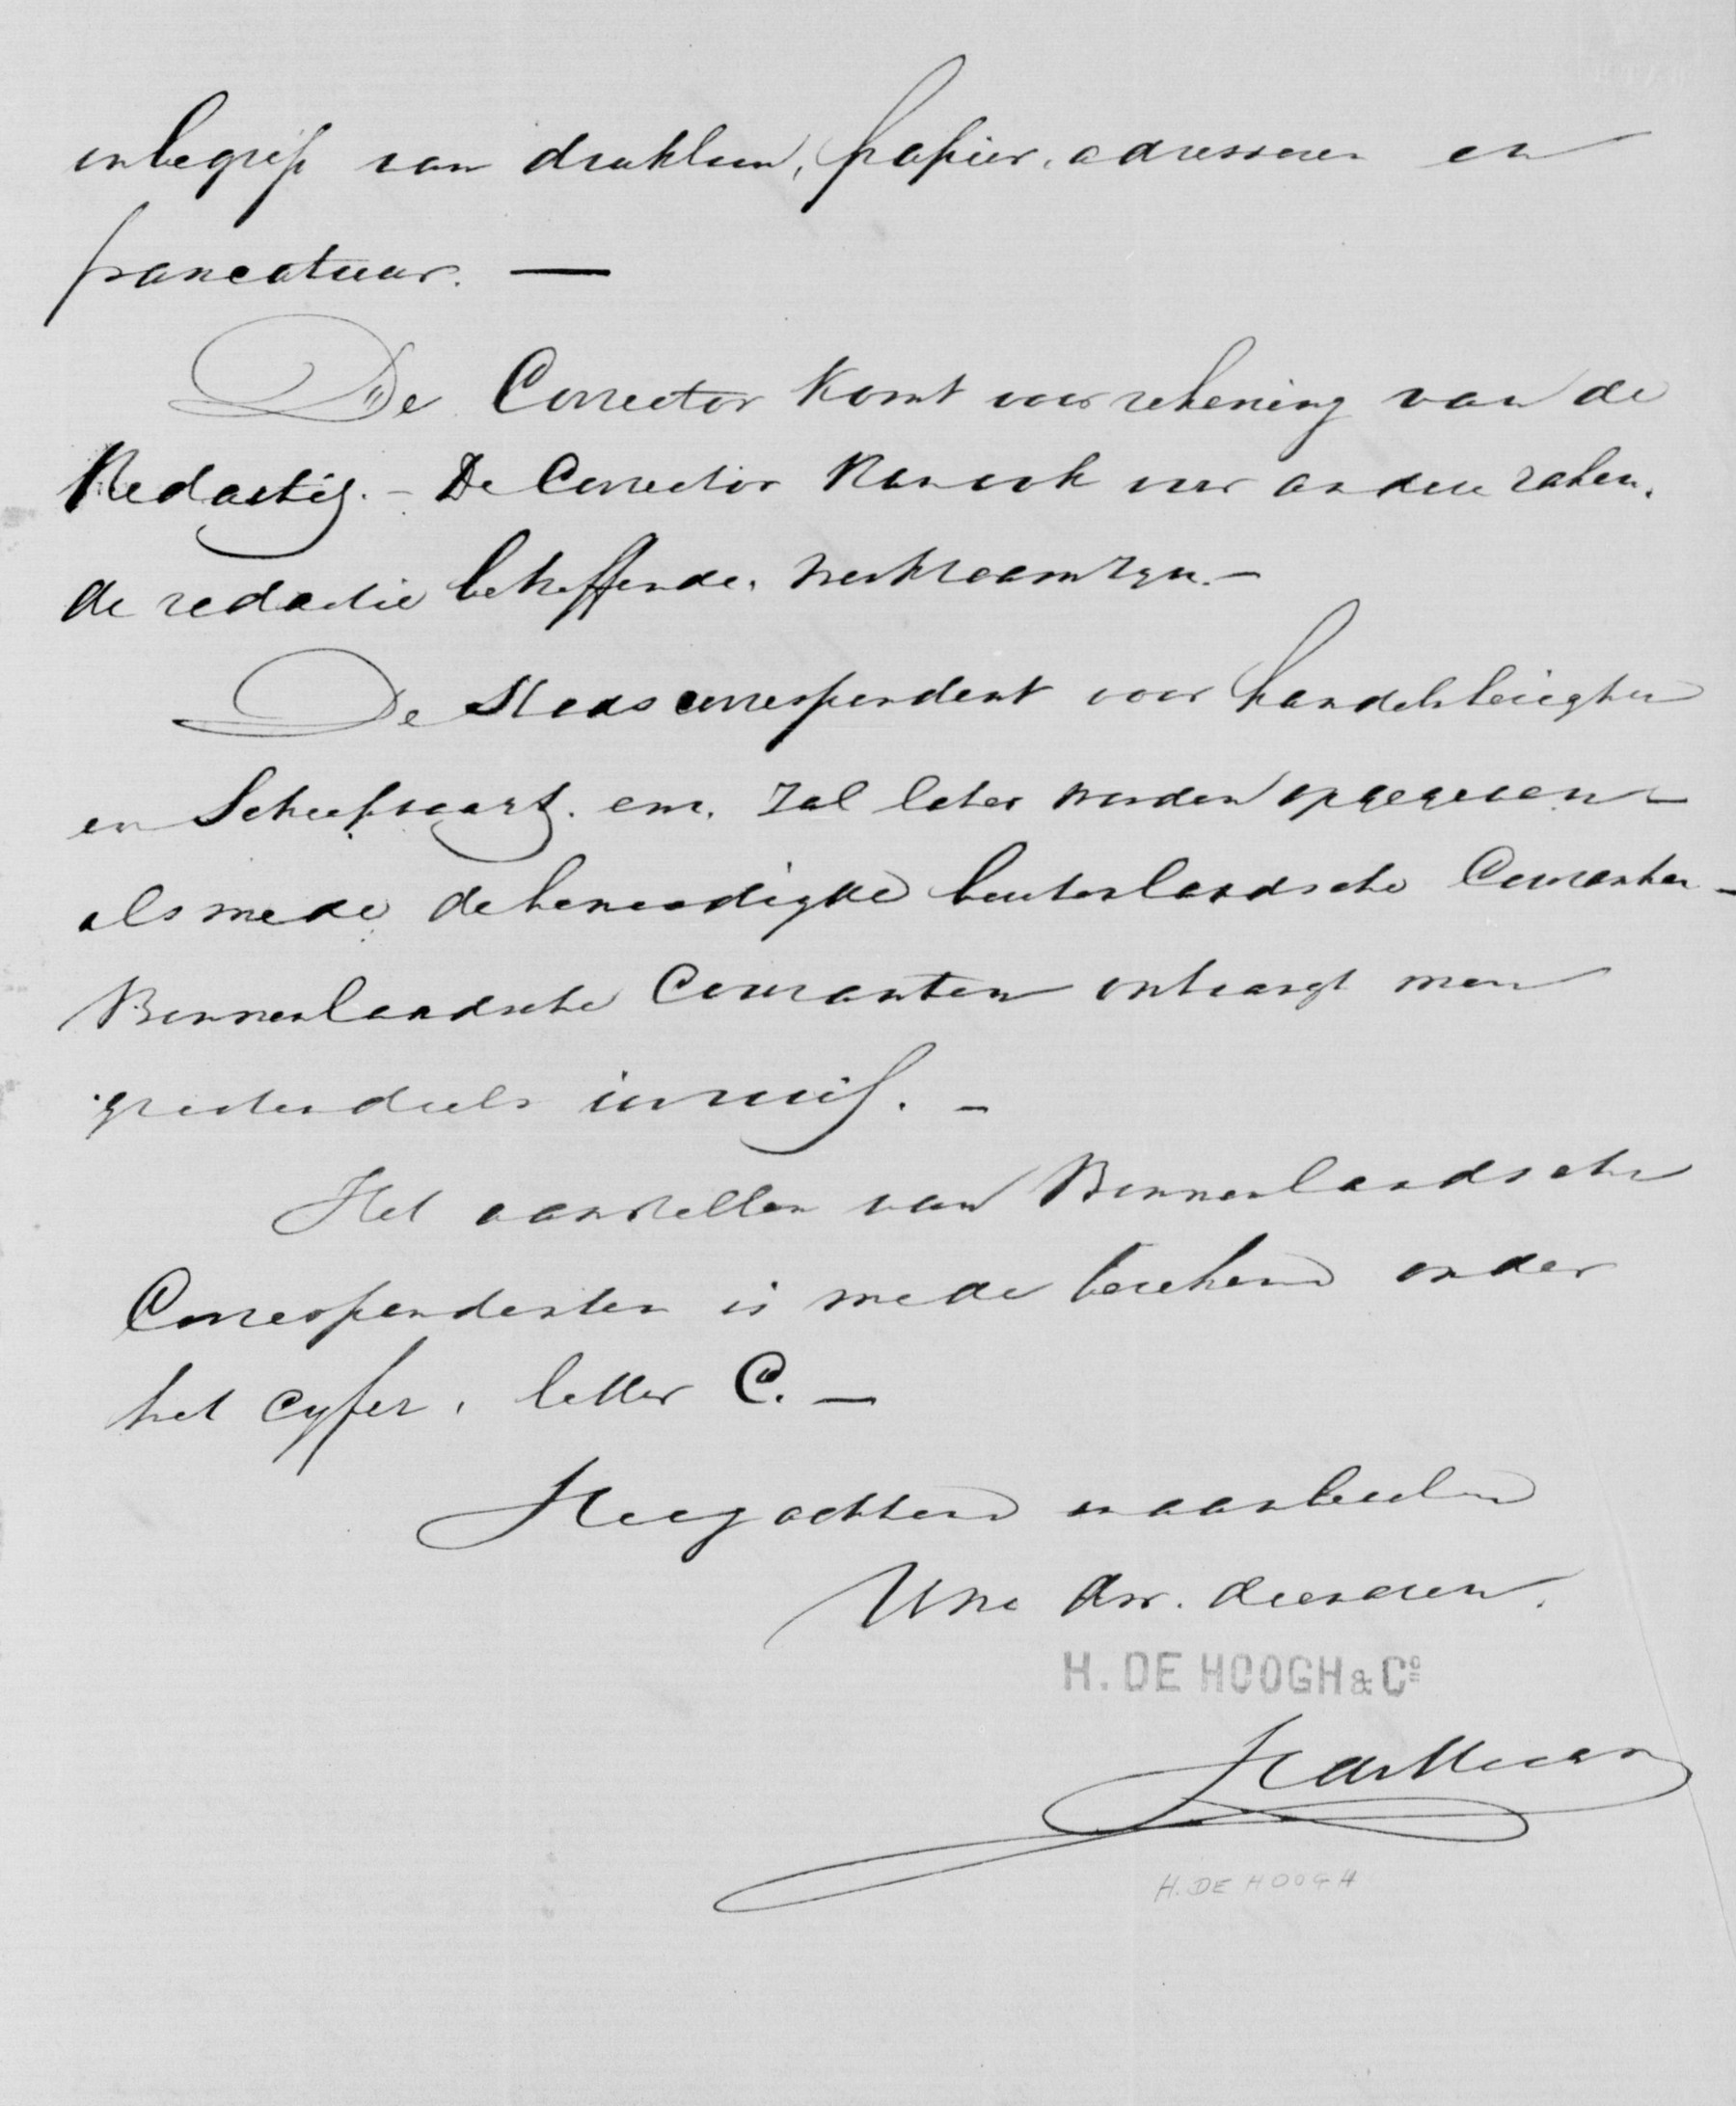 inbegrip van drukloon, papier, adresseren en
francatuur. —
De Corrector komt voor rekening van de
Redactie. – De Corrector kan ook voor andere zaken,
de redactie betreffende, werkzaam zyn. –
De Stads correspondent voor handelsberigten
en Scheepvaart. enz. zal later worden opgegeven –
alsmede de benoodigde buitenlandsche Couranten –
Binnenlandsche Couranten ontvangt men
grootendeels in ruil. –
Het aanstellen van Binnenlandsche
Correspondenten is mede berekend onder
het cyfer, letter C. —
Hoogachtend
UwE dw. dienaren.
H. DE HOOGH & Co
H. DE HOOGH